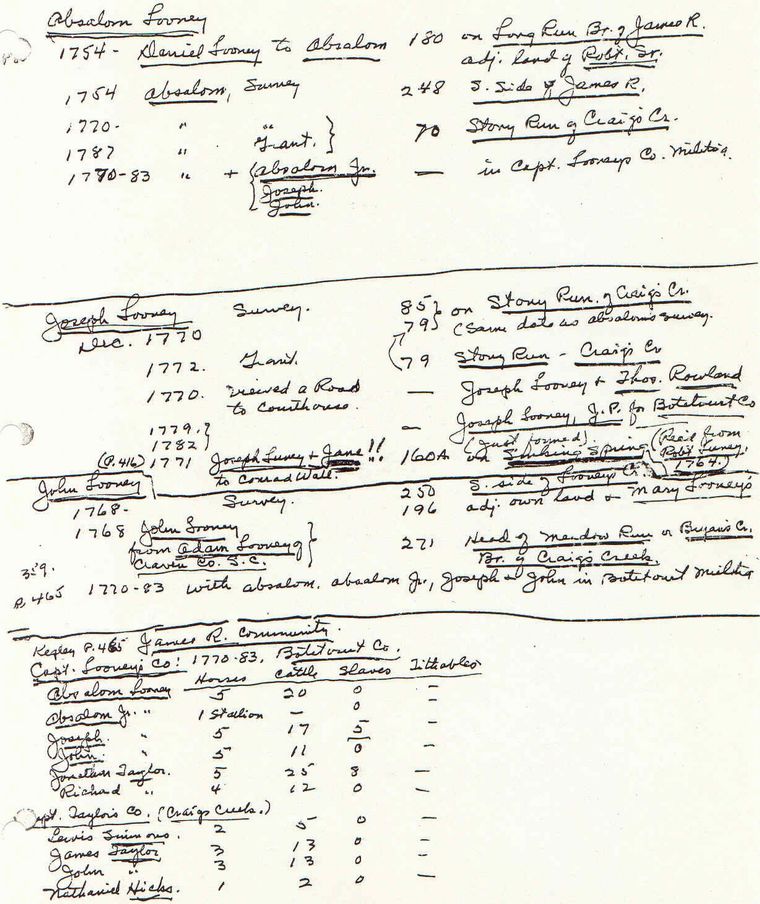 Absalom Looney
1754- Daniel Looney to Absalom 180 on Long Run Br. of James R.
adj. land of Robt. Sr.
1754 Absalom, Survey 248 S. Side of James R.
1770- " "
1787 " Grant. } 70 Stony Run of Craig's Cr.
1770-83 " + { Absalom Jr. — in Capt. Looneys Co. Militia.
Joseph.
John.
Joseph Looney Survey. 85 } on Stony Run of Craig's Cr.
Dec. 1770 79 } (Same date as absalom's survey.
1772. Grant. (79 Stony Run - Craig's Cr
1770. Viewed a Road — Joseph Looney + Thos. Rowland
to Courthouse.
1779. } — Joseph Looney, J.P. for Botetourt Co
1782 } (Just formed)
(P. 416) 1771 Joseph Luney + Jane!! 160A on Sinking Spring (Rec'd from
to Conrad Wall. Robt Luney,
1764)
John Looney Survey. 250 S. side of Looneys Cr.
1768- 196 adj. own land + Mary Looney's
1768 John Looney
from Adam Looney of } 271 Head of Meadow Run or Bryan's Cr.
Craven Co. S.C. Br. of Craig's Creek.
P. 465 1770-83 with absalom, absalom Jr., Joseph + John in Botetourt Militia
Kegley P. 465 James R. Community.
Capt. Looneys Co: 1770-83, Botetourt Co.
Horses Cattle Slaves Tithables
Absalom Looney 5 20 0 —
Absalom Jr. " 1 Stallion — 0 —
Joseph " 5 17 5 —
John. " 5 11 0 —
Jonathan Taylor. 5 25 8 —
Richard " 4 12 0 —
Capt. Taylors Co. (Craigs Creek.)
Lewis Simmons. 2 5 0 —
James Taylor 3 13 0 —
John " 3 13 0 —
Nathaniel Hicks. 1 2 0 —